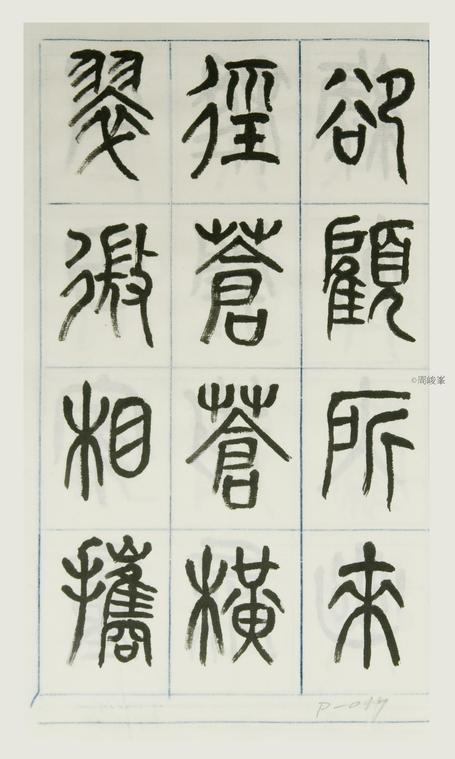 卻顧所來
徑蒼蒼橫
翠微相攜
©周峻峯